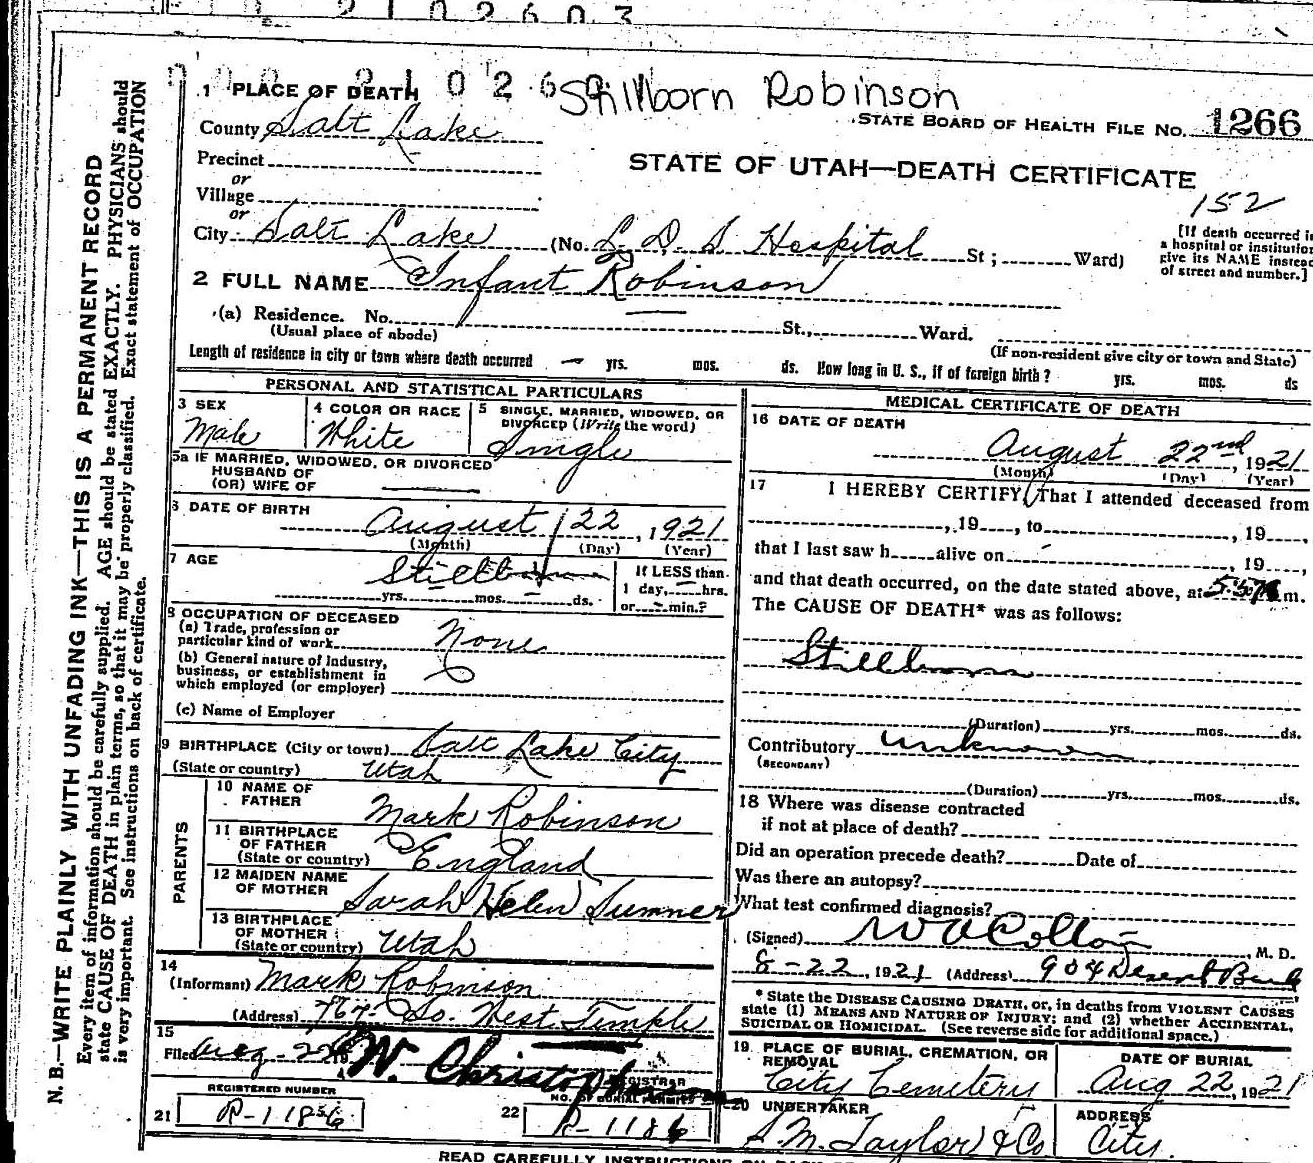 2 1 0 2 6 0 3
0 0 0 2 1 0 2 6 0
Stillborn Robinson
1 PLACE OF DEATH
STATE BOARD OF HEALTH FILE NO. 1266
County Salt Lake
STATE OF UTAH—DEATH CERTIFICATE
Precinct
or
Village
or
152
City Salt Lake (No. L. D. S Hospital St ; Ward)
[If death occurred in
a hospital or institution
give its NAME instead
of street and number.]
2 FULL NAME Infant Robinson
(a) Residence. No. St., Ward.
(Usual place of abode)
(If non-resident give city or town and State)
Length of residence in city or town where death occurred — yrs. mos. ds. How long in U. S., if of foreign birth ? yrs. mos. ds
PERSONAL AND STATISTICAL PARTICULARS
3 SEX
Male
4 COLOR OR RACE
White
5 SINGLE, MARRIED, WIDOWED, OR
DIVORCED (Write the word)
Single
5a IF MARRIED, WIDOWED, OR DIVORCED
HUSBAND OF
(OR) WIFE OF
6 DATE OF BIRTH
August 22, 1921
(Month) (Day) (Year)
7 AGE
Stillborn
yrs. mos. ds.
If LESS than
1 day, hrs.
or min.?
8 OCCUPATION OF DECEASED
(a) Trade, profession or
particular kind of work None
(b) General nature of Industry,
business, or establishment in
which employed (or employer)
(c) Name of Employer
9 BIRTHPLACE (City or town) Salt Lake City
(State or country) Utah
PARENTS
10 NAME OF
FATHER Mark Robinson
11 BIRTHPLACE
OF FATHER
(State or country) England
12 MAIDEN NAME
OF MOTHER Sarah Helen Sumner
13 BIRTHPLACE
OF MOTHER
(State or country) Utah
14
(Informant) Mark Robinson
(Address) So. West Temple
15
Filed Aug-22 W. Christopherson
REGISTRAR
REGISTERED NUMBER
21 R-1186
NO. OF BURIAL PERMIT
22 R-1186
MEDICAL CERTIFICATE OF DEATH
16 DATE OF DEATH
August 22nd, 1921
(Month) (Day) (Year)
17 I HEREBY CERTIFY, That I attended deceased from
, 19 , to , 19 ,
that I last saw h alive on , 19 ,
and that death occurred, on the date stated above, at m.
The CAUSE OF DEATH* was as follows:
Stillborn
(Duration) yrs. mos. ds.
Contributory unknown
(SECONDARY)
(Duration) yrs. mos. ds.
18 Where was disease contracted
if not at place of death?
Did an operation precede death? Date of
Was there an autopsy?
What test confirmed diagnosis?
(Signed) , M. D.
8-22, 1921 (Address) 904 Deseret Bank
* State the DISEASE CAUSING DEATH, or, in deaths from VIOLENT CAUSES
state (1) MEANS AND NATURE OF INJURY; and (2) whether ACCIDENTAL,
SUICIDAL OR HOMICIDAL. (See reverse side for additional space.)
19. PLACE OF BURIAL, CREMATION, OR
REMOVAL
City Cemetery
DATE OF BURIAL
Aug 22, 1921
20 UNDERTAKER
S. M. Taylor & Co
ADDRESS
City.
READ CAREFULLY INSTRUCTIONS ON BACK OF
N. B.—WRITE PLAINLY WITH UNFADING INK—THIS IS A PERMANENT RECORD
Every item of information should be carefully supplied. AGE should be stated EXACTLY. PHYSICIANS should
state CAUSE OF DEATH in plain terms, so that it may be properly classified. Exact statement of OCCUPATION
is very important. See instructions on back of certificate.